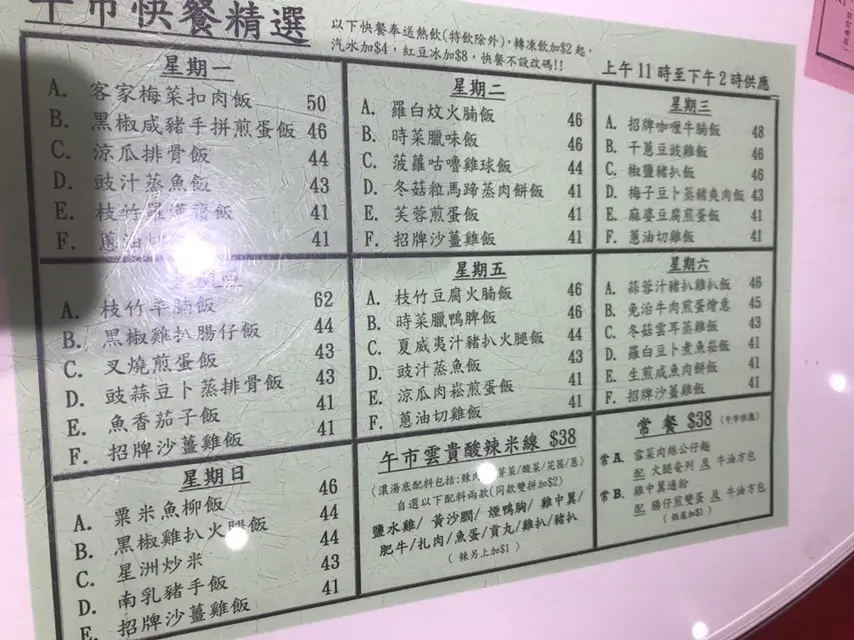 午市快餐精選
以下快餐奉送熱飲(特飲除外),轉凍飲加$2起,
汽水加$4,紅豆冰加$8,快餐不設改碼!!
上午11時至下午2時供應
星期一
A. 客家梅菜扣肉飯 50
B. 黑椒咸豬手拼煎蛋飯 46
C. 涼瓜排骨飯 44
D. 豉汁蒸魚飯 43
E. 枝竹羅漢齋飯 41
F. 蔥油 41
星期二
A. 羅白炆火腩飯 46
B. 時菜臘味飯 46
C. 菠蘿咕嚕雞球飯 44
D. 冬菇粒馬蹄蒸肉餅飯 41
E. 芙蓉煎蛋飯 41
F. 招牌沙薑雞飯 41
星期三
A. 招牌咖喱牛腩飯 48
B. 干蔥豆豉雞飯 46
C. 椒鹽豬扒飯 46
D. 梅子豆卜蒸豬爽肉飯 43
E. 麻婆豆腐煎蛋飯 41
F. 蔥油切雞飯 41
A. 枝竹羊腩飯 62
B. 黑椒雞扒腸仔飯 44
C. 叉燒煎蛋飯 43
D. 豉蒜豆卜蒸排骨飯 43
E. 魚香茄子飯 41
F. 招牌沙薑雞飯 41
星期五
A. 枝竹豆腐火腩飯 46
B. 時菜臘鴨脾飯 46
C. 夏威夷汁豬扒火腿飯 44
D. 豉汁蒸魚飯 43
E. 涼瓜肉崧煎蛋飯 41
F. 蔥油切雞飯 41
星期六
A. 蒜蓉汁豬扒雞扒飯 46
B. 免治牛肉煎蛋燴意 45
C. 冬菇雲耳蒸雞飯 43
D. 羅白豆卜煮魚崧飯 41
E. 生煎咸魚肉餅飯 41
F. 招牌沙薑雞飯 41
星期日
A. 粟米魚柳飯 46
B. 黑椒雞扒火腿飯 44
C. 星洲炒米 44
D. 南乳豬手飯 43
E. 招牌沙薑雞飯 41
午市雲貴酸辣米線 $38
(濃湯底配料包括:辣肉/芽菜/酸菜/芫茜/蔥)
自選以下配料兩款(同款雙拼加$2)
鹽水雞/ 黃沙膶/ 煙鴨胸/ 雞中翼/
肥牛/扎肉/魚蛋/貢丸/雞扒/豬扒
(辣另上加$1)
常餐 $38 (午市供應)
常A. 雪菜肉絲公仔麵
配 火腿奄列 及 牛油方包
常B. 雞中翼通粉
配 腸仔煎雙蛋 及 牛油方包
(烘底加$1)